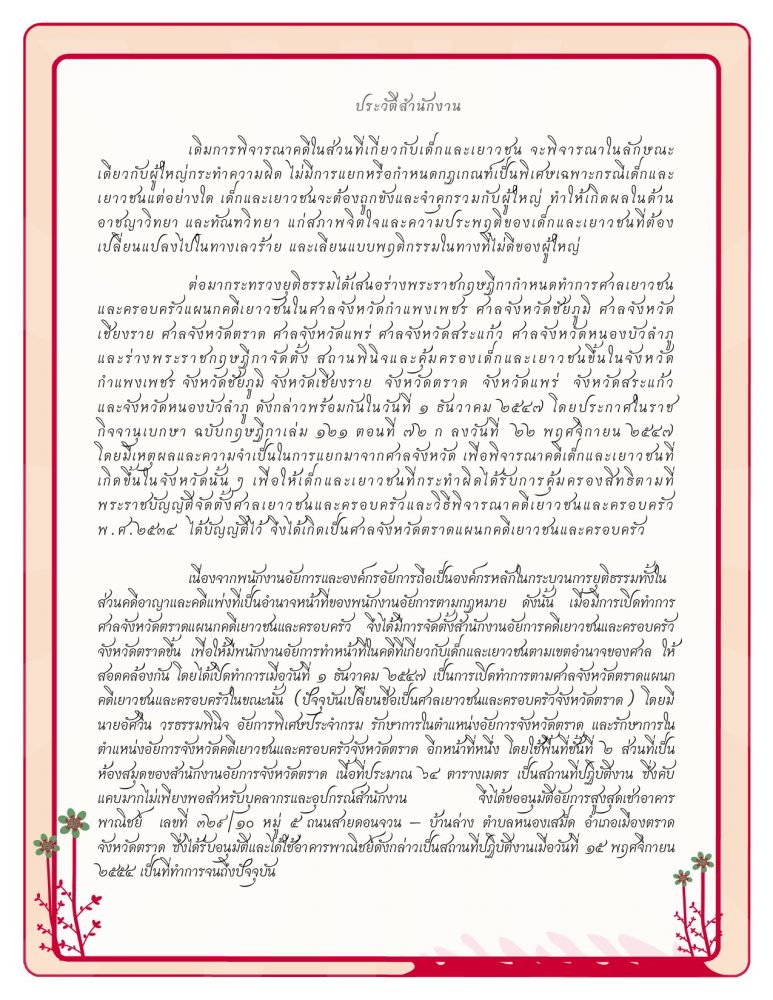 ประวัติสำนักงาน
เดิมการพิจารณาคดีในส่วนที่เกี่ยวกับเด็กและเยาวชน จะพิจารณาในลักษณะ
เดียวกับผู้ใหญ่กระทำความผิด ไม่มีการแยกหรือกำหนดกฎเกณฑ์เป็นพิเศษเฉพาะกรณีเด็กและ
เยาวชนแต่อย่างใด เด็กและเยาวชนจะต้องถูกขังและจำคุกรวมกับผู้ใหญ่ ทำให้เกิดผลในด้าน
อาชญาวิทยา และทัณฑวิทยา แก่สภาพจิตใจและความประพฤติของเด็กและเยาวชนที่ต้อง
เปลี่ยนแปลงไปในทางเลวร้าย และเลียนแบบพฤติกรรมในทางที่ไม่ดีของผู้ใหญ่
ต่อมากระทรวงยุติธรรมได้เสนอร่างพระราชกฤษฎีกากำหนดทำการศาลเยาวชน
และครอบครัวแผนกคดีเยาวชนในศาลจังหวัดกำแพงเพชร ศาลจังหวัดชัยภูมิ ศาลจังหวัด
เชียงราย ศาลจังหวัดตราด ศาลจังหวัดแพร่ ศาลจังหวัดสระแก้ว ศาลจังหวัดหนองบัวลำภู
และร่างพระราชกฤษฎีกาจัดตั้ง สถานพินิจและคุ้มครองเด็กและเยาวชนขึ้นในจังหวัด
กำแพงเพชร จังหวัดชัยภูมิ จังหวัดเชียงราย จังหวัดตราด จังหวัดแพร่ จังหวัดสระแก้ว
และจังหวัดหนองบัวลำภู ดังกล่าวพร้อมกันในวันที่ ๑ ธันวาคม ๒๕๔๗ โดยประกาศในราช
กิจจานุเบกษา ฉบับกฤษฎีกาเล่ม ๑๒๑ ตอนที่ ๗๒ ก ลงวันที่ ๒๒ พฤศจิกายน ๒๕๔๗
โดยมีเหตุผลและความจำเป็นในการแยกมาจากศาลจังหวัด เพื่อพิจารณาคดีเด็กและเยาวชนที่
เกิดขึ้นในจังหวัดนั้น ๆ เพื่อให้เด็กและเยาวชนที่กระทำผิดได้รับการคุ้มครองสิทธิตามที่
พระราชบัญญัติจัดตั้งศาลเยาวชนและครอบครัวและวิธีพิจารณาคดีเยาวชนและครอบครัว
พ.ศ.๒๕๓๔ ได้บัญญัติไว้ จึงได้เกิดเป็นศาลจังหวัดตราดแผนกคดีเยาวชนและครอบครัว
เนื่องจากพนักงานอัยการและองค์กรอัยการถือเป็นองค์กรหลักในกระบวนการยุติธรรมทั้งใน
ส่วนคดีอาญาและคดีแพ่งที่เป็นอำนาจหน้าที่ของพนักงานอัยการตามกฎหมาย ดังนั้น เมื่อมีการเปิดทำการ
ศาลจังหวัดตราดแผนกคดีเยาวชนและครอบครัว จึงได้มีการจัดตั้งสำนักงานอัยการคดีเยาวชนและครอบครัว
จังหวัดตราดขึ้น เพื่อให้มีพนักงานอัยการทำหน้าที่ในคดีที่เกี่ยวกับเด็กและเยาวชนตามเขตอำนาจของศาล ให้
สอดคล้องกัน โดยได้เปิดทำการเมื่อวันที่ ๑ ธันวาคม ๒๕๔๗ เป็นการเปิดทำการตามศาลจังหวัดตราดแผนก
คดีเยาวชนและครอบครัวในขณะนั้น (ปัจจุบันเปลี่ยนชื่อเป็นศาลเยาวชนและครอบครัวจังหวัดตราด) โดยมี
นายอัศวิน วรธรรมพินิจ อัยการพิเศษประจำกรม รักษาการในตำแหน่งอัยการจังหวัดตราด และรักษาการใน
ตำแหน่งอัยการจังหวัดคดีเยาวชนและครอบครัวจังหวัดตราด อีกหน้าที่หนึ่ง โดยใช้พื้นที่ชั้นที่ ๒ ส่วนที่เป็น
ห้องสมุดของสำนักงานอัยการจังหวัดตราด เนื้อที่ประมาณ ๖๔ ตารางเมตร เป็นสถานที่ปฏิบัติงาน ซึ่งคับ
แคบมากไม่เพียงพอสำหรับบุคลากรและอุปกรณ์สำนักงาน จึงได้ขออนุมัติอัยการสูงสุดเช่าอาคาร
พาณิชย์ เลขที่ ๓๒๙/๑๐ หมู่ ๕ ถนนสายดอนจวน – บ้านล่าง ตำบลหนองเสม็ด อำเภอเมืองตราด
จังหวัดตราด ซึ่งได้รับอนุมัติและได้ใช้อาคารพาณิชย์ดังกล่าวเป็นสถานที่ปฏิบัติงานเมื่อวันที่ ๑๕ พฤศจิกายน
๒๕๕๔ เป็นที่ทำการจนถึงปัจจุบัน